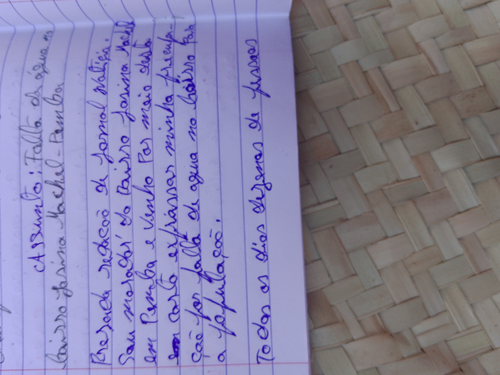 Assunto: Falta de água no
bairro Josina Machel-Pemba
Prezada redação de jornal notícia.
Sou morador do bairro Josina Machel
em Pemba e venho por meio desta
carta expressar minha preocupa
ção por falta de agua no bairro par
a população.
Todos os dias dezenas de pessoas